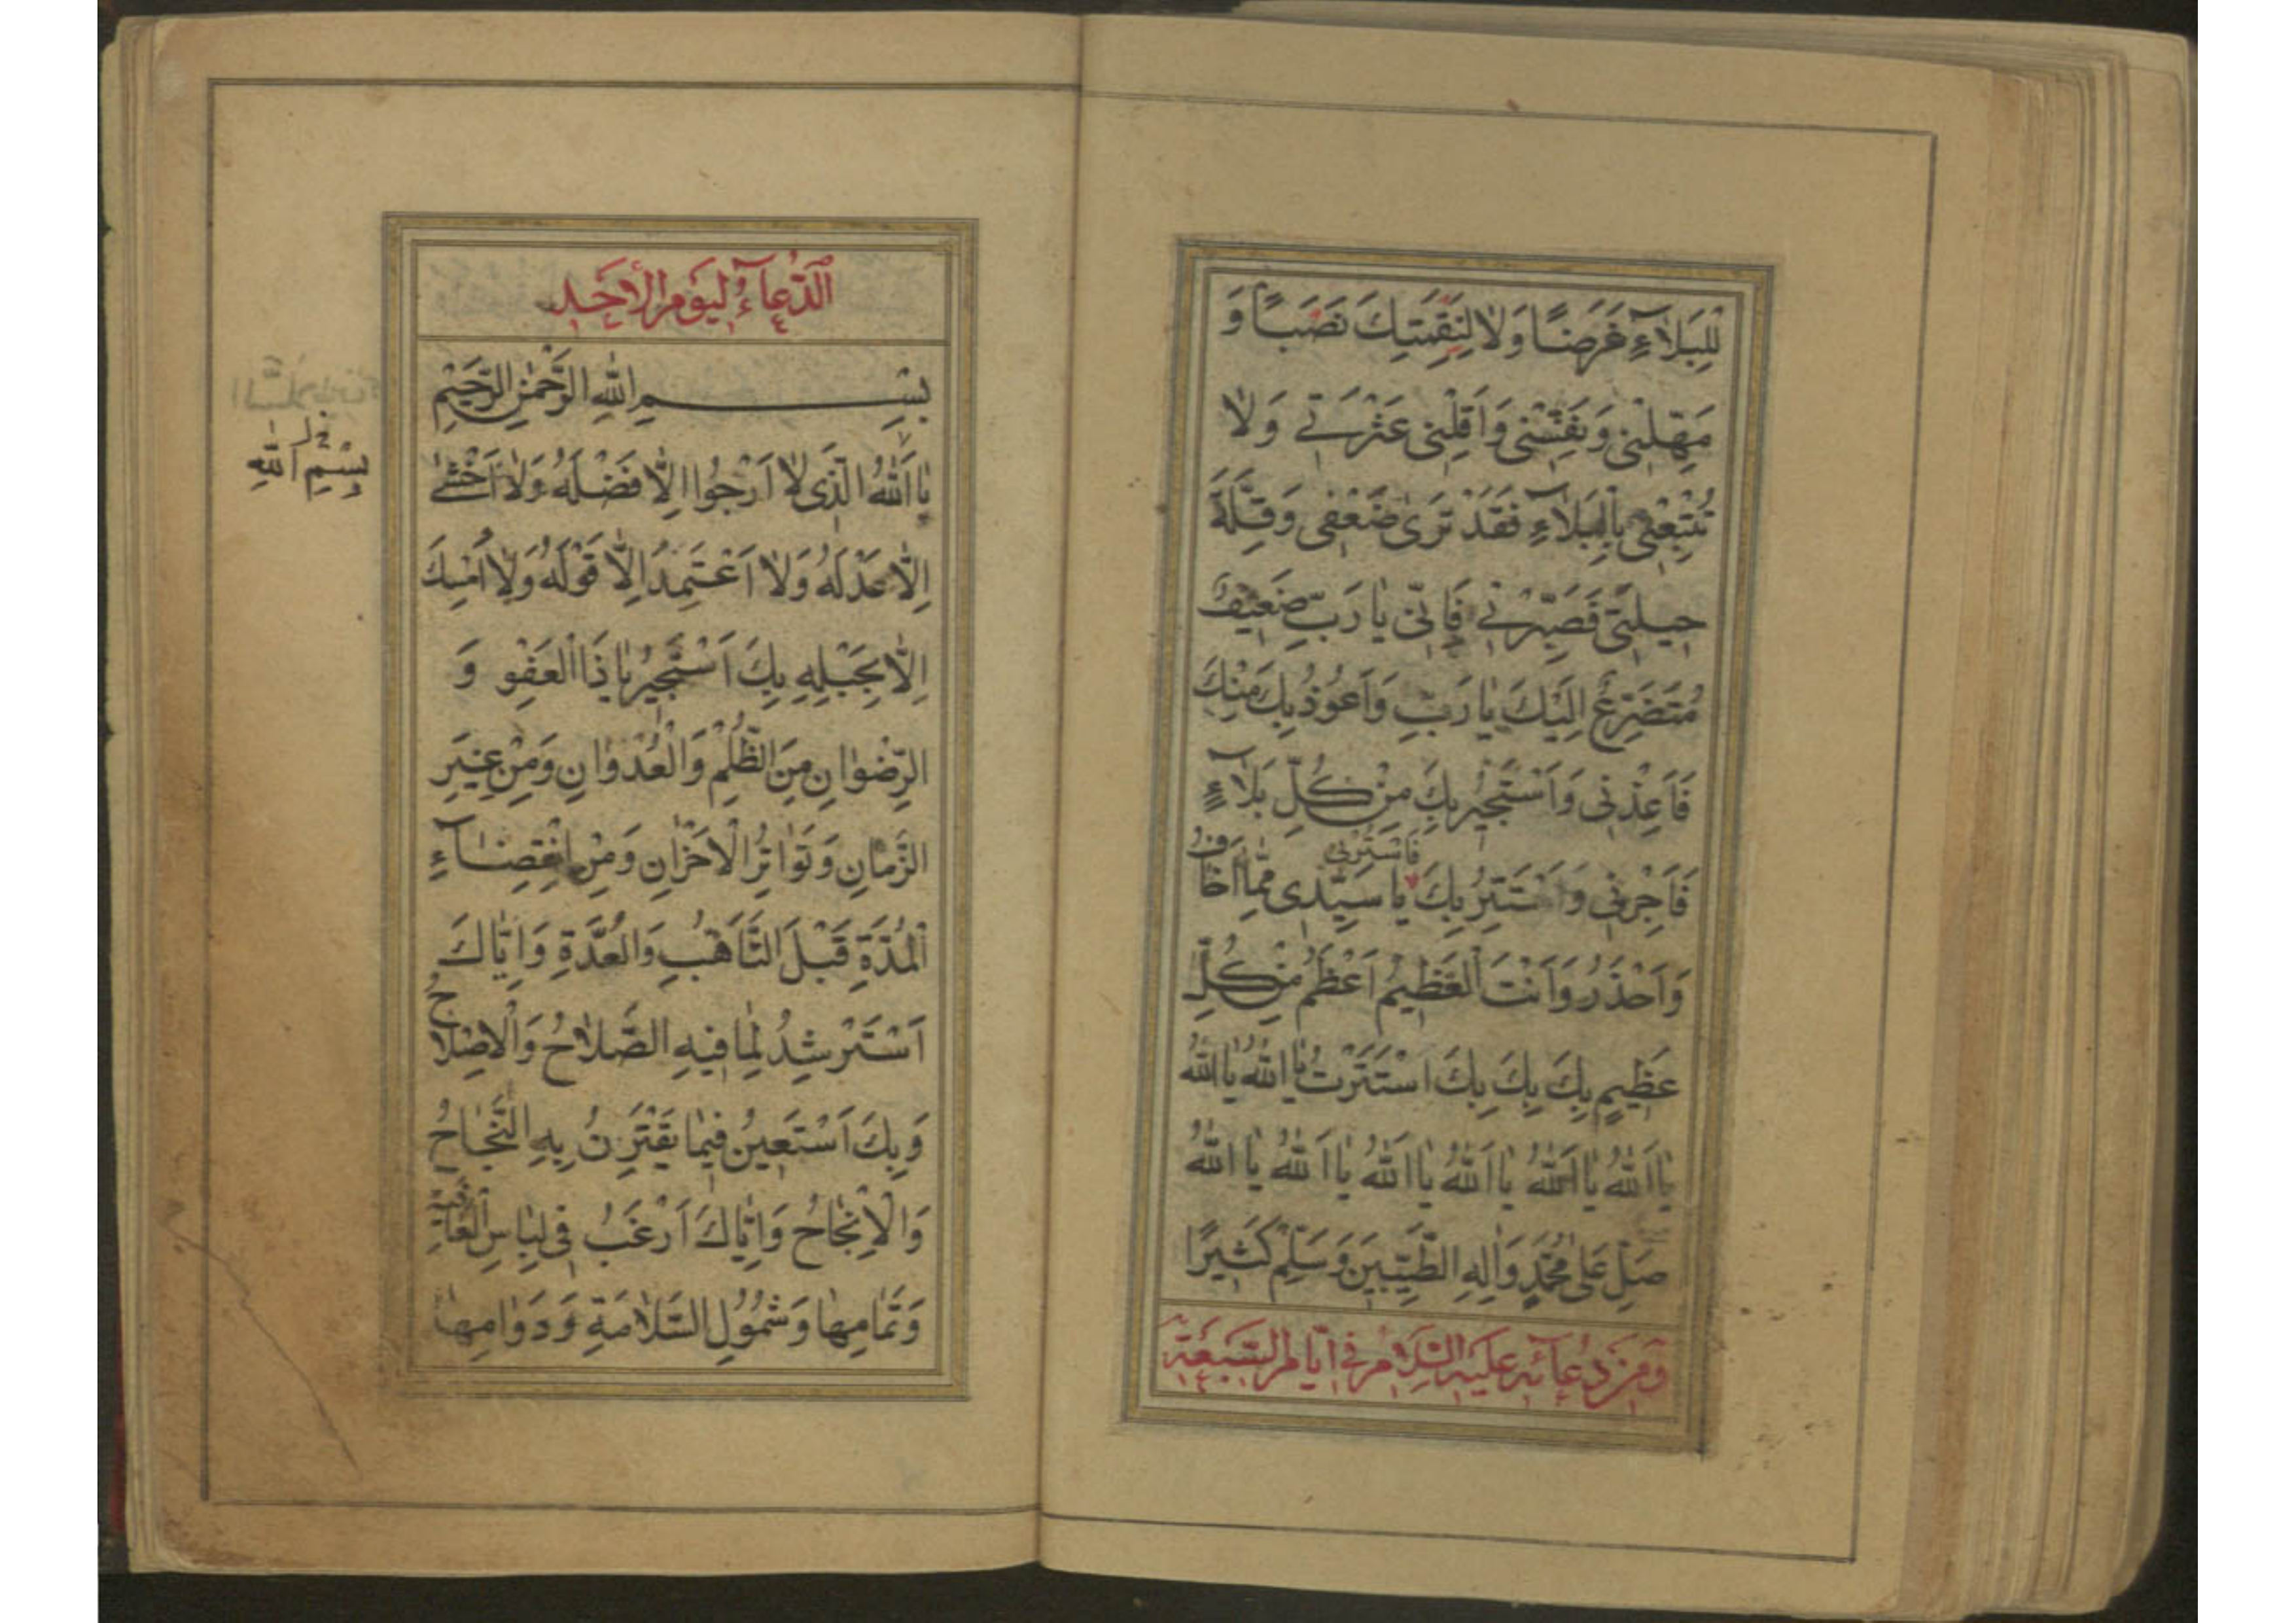 لِلْبَلَاءِ غَرَضًا وَلَا لِنَقِمَتِكَ نَصَبًا وَ
مَهِّلْنِي وَنَفِّسْنِي وَاَقِلْنِي عَثْرَتِي وَلَا
تُتْبِعْنِي بِالْبَلَاءِ فَقَدْ تَرَى ضَعْفِي وَقِلَّةَ
حِيلَتِي فَصَبِّرْنِي فَاِنِّي يَا رَبِّ ضَعِيفٌ
مُتَضَرِّعٌ اِلَيْكَ يَا رَبِّ وَاَعُوذُ بِكَ مِنْكَ
فَاَعِذْنِي وَاَسْتَجِيرُ بِكَ مِنْ كُلِّ بَلَاءٍ
فَاسْتُرْنِي
فَاَجِرْنِي وَاَسْتَتِرُ بِكَ يَا سَيِّدِي مِمَّا اَخَافُ
وَاَحْذَرُ وَاَنْتَ الْعَظِيمُ اَعْظَمُ مِنْ كُلِّ
عَظِيمٍ بِكَ بِكَ بِكَ اَسْتَتَرْتُ يَا اَللهُ يَا اَللهُ
يَا اَللهُ يَا اَللهُ يَا اَللهُ يَا اَللهُ يَا اَللهُ يَا اَللهُ
صَلِّ عَلَى مُحَمَّدٍ وَاٰلِهِ الطَّيِّبِينَ وَسَلِّمْ كَثِيرًا
وَمِنْ دُعَائِهِ عَلَيْهِ السَّلَامُ فِي اَيَّامِ السَّبْعَةِ
اَلدُّعَاءُ لِيَوْمِ الْاَحَدِ
بِسْمِ اللهِ الرَّحْمٰنِ الرَّحِيمِ
يَا اَللهُ الَّذِي لَا اَرْجُوا اِلَّا فَضْلَهُ وَلَا اَخْشٰى
بِسْمِ اللهِ
اِلَّا عَدْلَهُ وَلَا اَعْتَمِدُ اِلَّا قَوْلَهُ وَلَا اُمْسِكُ
اِلَّا بِحَبْلِهِ بِكَ اَسْتَجِيرُ يَا ذَا الْعَفْوِ وَ
الرِّضْوَانِ مِنَ الظُّلْمِ وَالْعُدْوَانِ وَمِنْ غِيَرِ
الزَّمَانِ وَتَوَاتُرِ الْاَحْزَانِ وَمِنِ انْقِضَاءِ
الْمُدَّةِ قَبْلَ التَّاَهُّبِ وَالْعُدَّةِ وَاِيَّاكَ
اَسْتَرْشِدُ لِمَا فِيهِ الصَّلَاحُ وَالْاِصْلَاحُ
وَبِكَ اَسْتَعِينُ فِيمَا يَقْتَرِنُ بِهِ النَّجَاحُ
وَالْاِنْجَاحُ وَاِيَّاكَ اَرْغَبُ فِي لِبَاسِ الْعَافِيَةِ
وَتَمَامِهَا وَشُمُولِ السَّلَامَةِ وَدَوَامِهَا